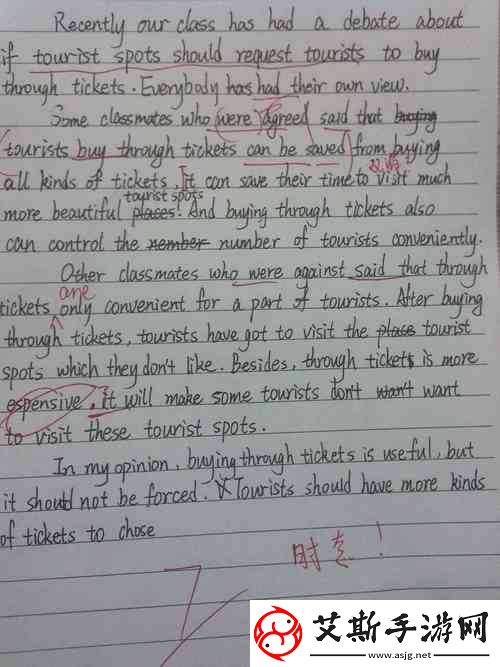 Recently our class has had a debate about
if tourist spots should request tourists to buy
through tickets. Everybody has had their own view.
Some classmates who were agreed said that buying
tourists buy through tickets can be saved from buying
all kinds of tickets. It can save their time to visit much
more beautiful places. tourist spots And buying through tickets also
can control the nember number of tourists conveniently.
Other classmates who were against said that through
are
tickets only convenient for a part of tourists. After buying
through tickets, tourists have got to visit the place tourist
spots which they don't like. Besides, through tickets is more
espensive, it will make some tourists don't wan't want
to visit these tourist spots.
In my opinion, buying through tickets is useful, but
it should not be forced. Tourists should have more kinds
of tickets to chose
时态!
艾斯手游网
www.asjg.net